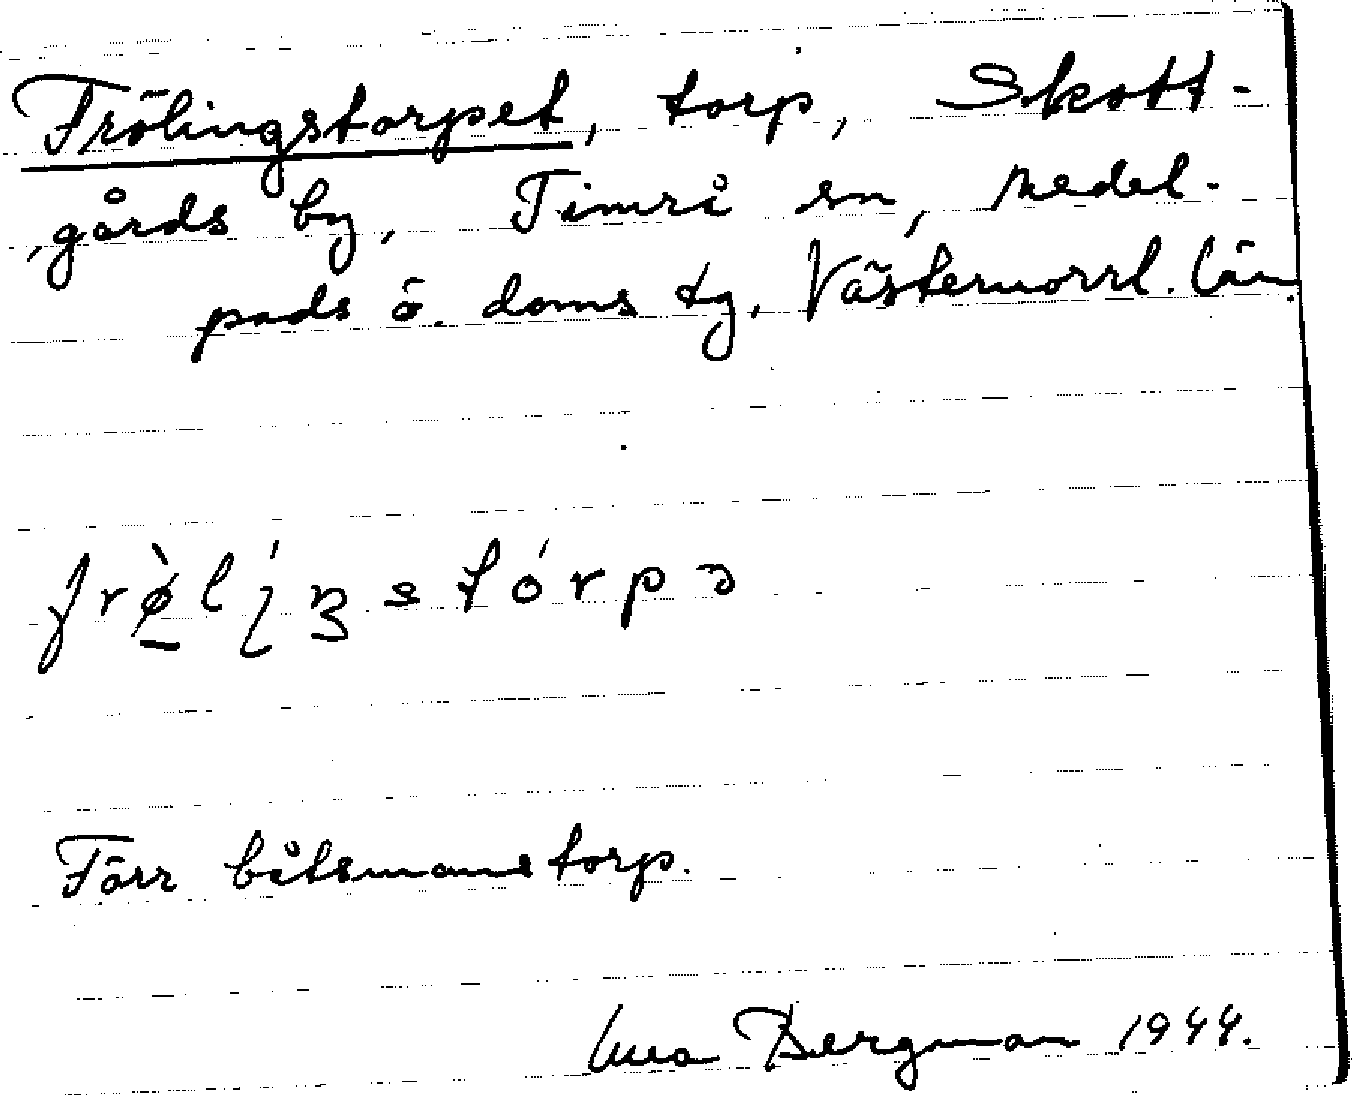 Frölingstorpet, torp, Skott-
gårds by, Timrå sn, Medel-
pads ö. doms tg, Västernorrl. län.
frø̀lı̨́ŋstórpə
Förr båtsmanstorp.
Bergman 1944.